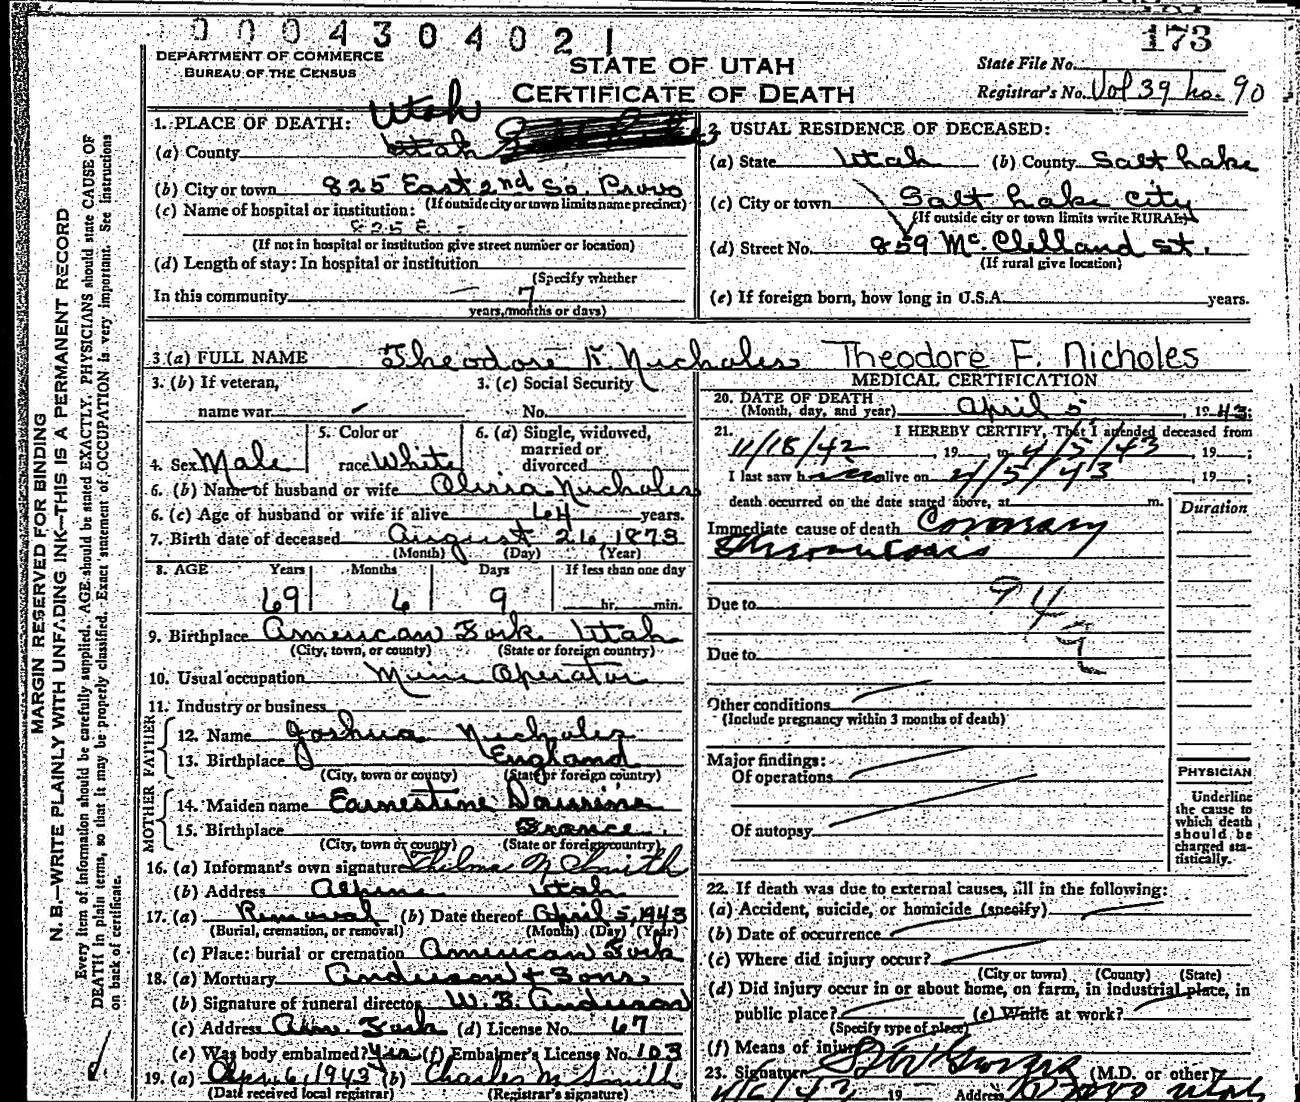 0004304021
173
DEPARTMENT OF COMMERCE
BUREAU OF THE CENSUS
STATE OF UTAH
CERTIFICATE OF DEATH
State File No.
Registrar's No. Vol 39 no. 90
1. PLACE OF DEATH: Utah
(a) County Utah
(b) City or town 825 East 2nd So. Provo
(If outside city or town limits name precinct)
(c) Name of hospital or institution:
825 E.
(If not in hospital or institution give street number or location)
(d) Length of stay: In hospital or institution
(Specify whether
In this community 7
years, months or days)
2 USUAL RESIDENCE OF DECEASED:
(a) State Utah (b) County Salt Lake
(c) City or town Salt Lake City
(If outside city or town limits write RURAL)
(d) Street No. 859 Mc.Clelland St.
(If rural give location)
(e) If foreign born, how long in U.S.A. years.
3.(a) FULL NAME Theodore F. Nicholes Theodore F. Nicholes
3. (b) If veteran,
name war
3. (c) Social Security
No.
4. Sex Male
5. Color or
race White
6. (a) Single, widowed,
married or
divorced
6. (b) Name of husband or wife Nicholes
6. (c) Age of husband or wife if alive 64 years.
7. Birth date of deceased August 26, 1873
(Month) (Day) (Year)
8. AGE Years Months Days If less than one day
69 6 9 hr. min.
9. Birthplace American Fork Utah
(City, town, or county) (State or foreign country)
10. Usual occupation Mine Operator
11. Industry or business
FATHER
12. Name Joshua Nicholes
13. Birthplace England
(City, town or county) (State or foreign country)
MOTHER
14. Maiden name Earnestine
15. Birthplace France
(City, town or county) (State or foreign country)
16. (a) Informant's own signature Thelma N Smith
(b) Address Alpine Utah
17. (a) Removal (b) Date thereof April 5, 1943
(Burial, cremation, or removal) (Month) (Day) (Year)
(c) Place: burial or cremation American Fork
18. (a) Mortuary Anderson & Sons
(b) Signature of funeral director W. B. Anderson
(c) Address Am. Fork (d) License No. 67
(e) Was body embalmed? Yes (f) Embalmer's License No. 103
19. (a) Apr. 6, 1943 (b) Charles M Smith
(Date received local registrar) (Registrar's signature)
MEDICAL CERTIFICATION
20. DATE OF DEATH
(Month, day, and year) April 5, 1943;
21. I HEREBY CERTIFY, That I attended deceased from
11/18/42, 19 to 4/5/43, 19 ;
I last saw h im alive on 4/5/43, 19 ;
death occurred on the date stated above, at m.
Duration
Immediate cause of death Coronary
Due to 94
Due to
Other conditions
(Include pregnancy within 3 months of death)
Major findings:
Of operations
Of autopsy
PHYSICIAN
Underline
the cause to
which death
should be
charged sta-
tistically.
22. If death was due to external causes, fill in the following:
(a) Accident, suicide, or homicide (specify)
(b) Date of occurrence
(c) Where did injury occur?
(City or town) (County) (State)
(d) Did injury occur in or about home, on farm, in industrial place, in
public place? (e) While at work?
(Specify type of place)
(f) Means of injury
23. Signature (M.D. or other)
4/6/43 19 Address Provo Utah
MARGIN RESERVED FOR BINDING
N. B.—WRITE PLAINLY WITH UNFADING INK—THIS IS A PERMANENT RECORD
Every item of information should be carefully supplied. AGE should be stated EXACTLY. PHYSICIANS should state CAUSE OF
DEATH in plain terms, so that it may be properly classified. Exact statement of OCCUPATION is very important. See instructions
on back of certificate.